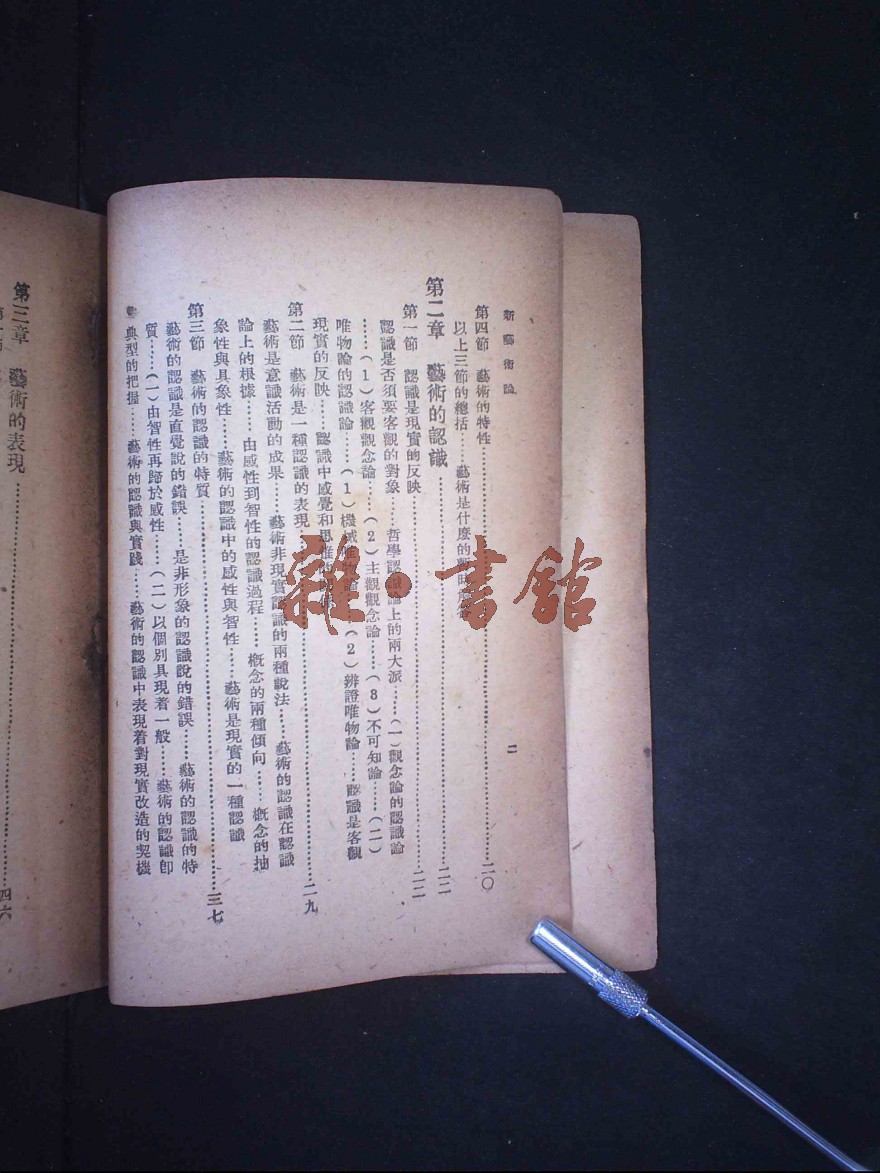 新藝術論
二
第四節 藝術的特性……二〇
以上三節的總括……藝術是什麼的
第二章 藝術的認識……二二
第一節 認識是現實的反映……二二
認識是否須要客觀的對象……哲學認識論上的兩大派……(一)觀念論的認識論
……(1)客觀觀念論……(2)主觀觀念論……(3)不可知論……(二)
唯物論的認識論……(1)機械唯物論……(2)辨證唯物論……認識是客觀
現實的反映……認識中感覺和思維的
第二節 藝術是一種認識的表現……二九
藝術是意識活動的成果……藝術非現實認識的兩種說法……藝術的認識在認識
論上的根據……由感性到智性的認識過程……概念的兩種傾向……概念的抽
象性與具象性……藝術的認識中的感性與智性……藝術是現實的一種認識
第三節 藝術的認識的特質……三七
藝術的認識是直覺說的錯誤……是非形象的認識說的錯誤……藝術的認識的特
質……(一)由智性再歸於感性……(二)以個別具現着一般……藝術的認識即
典型的把握……藝術的認識與實踐……藝術的認識中表現着對現實改造的契機
第三章 藝術的表現……四六
雜·書館